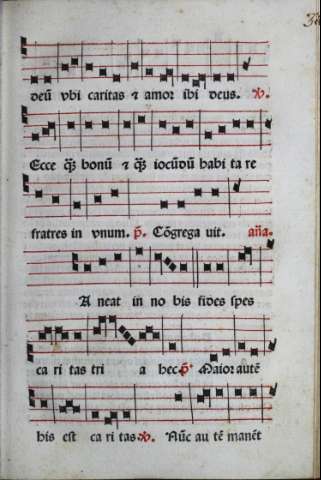 deū vbi caritas ⁊ amor ibi deus. ꝟ.
Ecce q̄ȝ bonū ⁊ q̄ȝ iocūdū habi ta re
fratres in vnum. p̄. Cōgrega uit. an̄a.
A neat in no bis fides spes
ca ri tas tri a hec p̄ Maior autē
his est ca ri tas ꝟ. Nūc au tē manēt